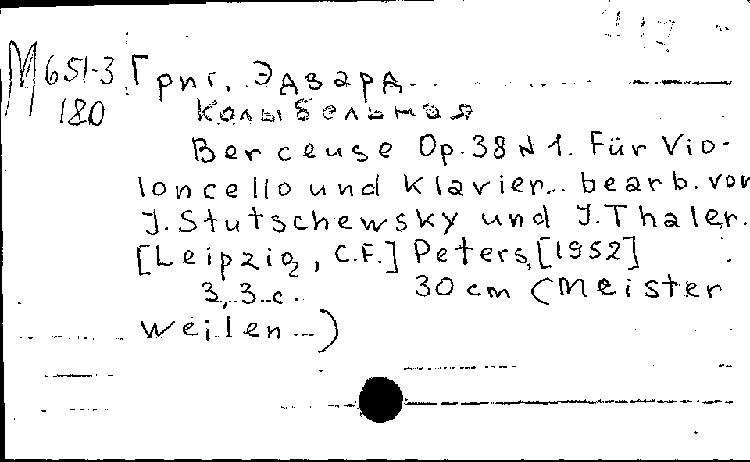 М651-3
180
Григ, Эдвард.
Колыбельная
Berceuse Op.38 N 1. Für Vio-
loncello und Klavier... bearb. von
J. Stutschewsky und J. Thaler.
[Leipzig, C.F.] Peters, [1952]
3, 3 с. 30 cm (Meister
weilen...)